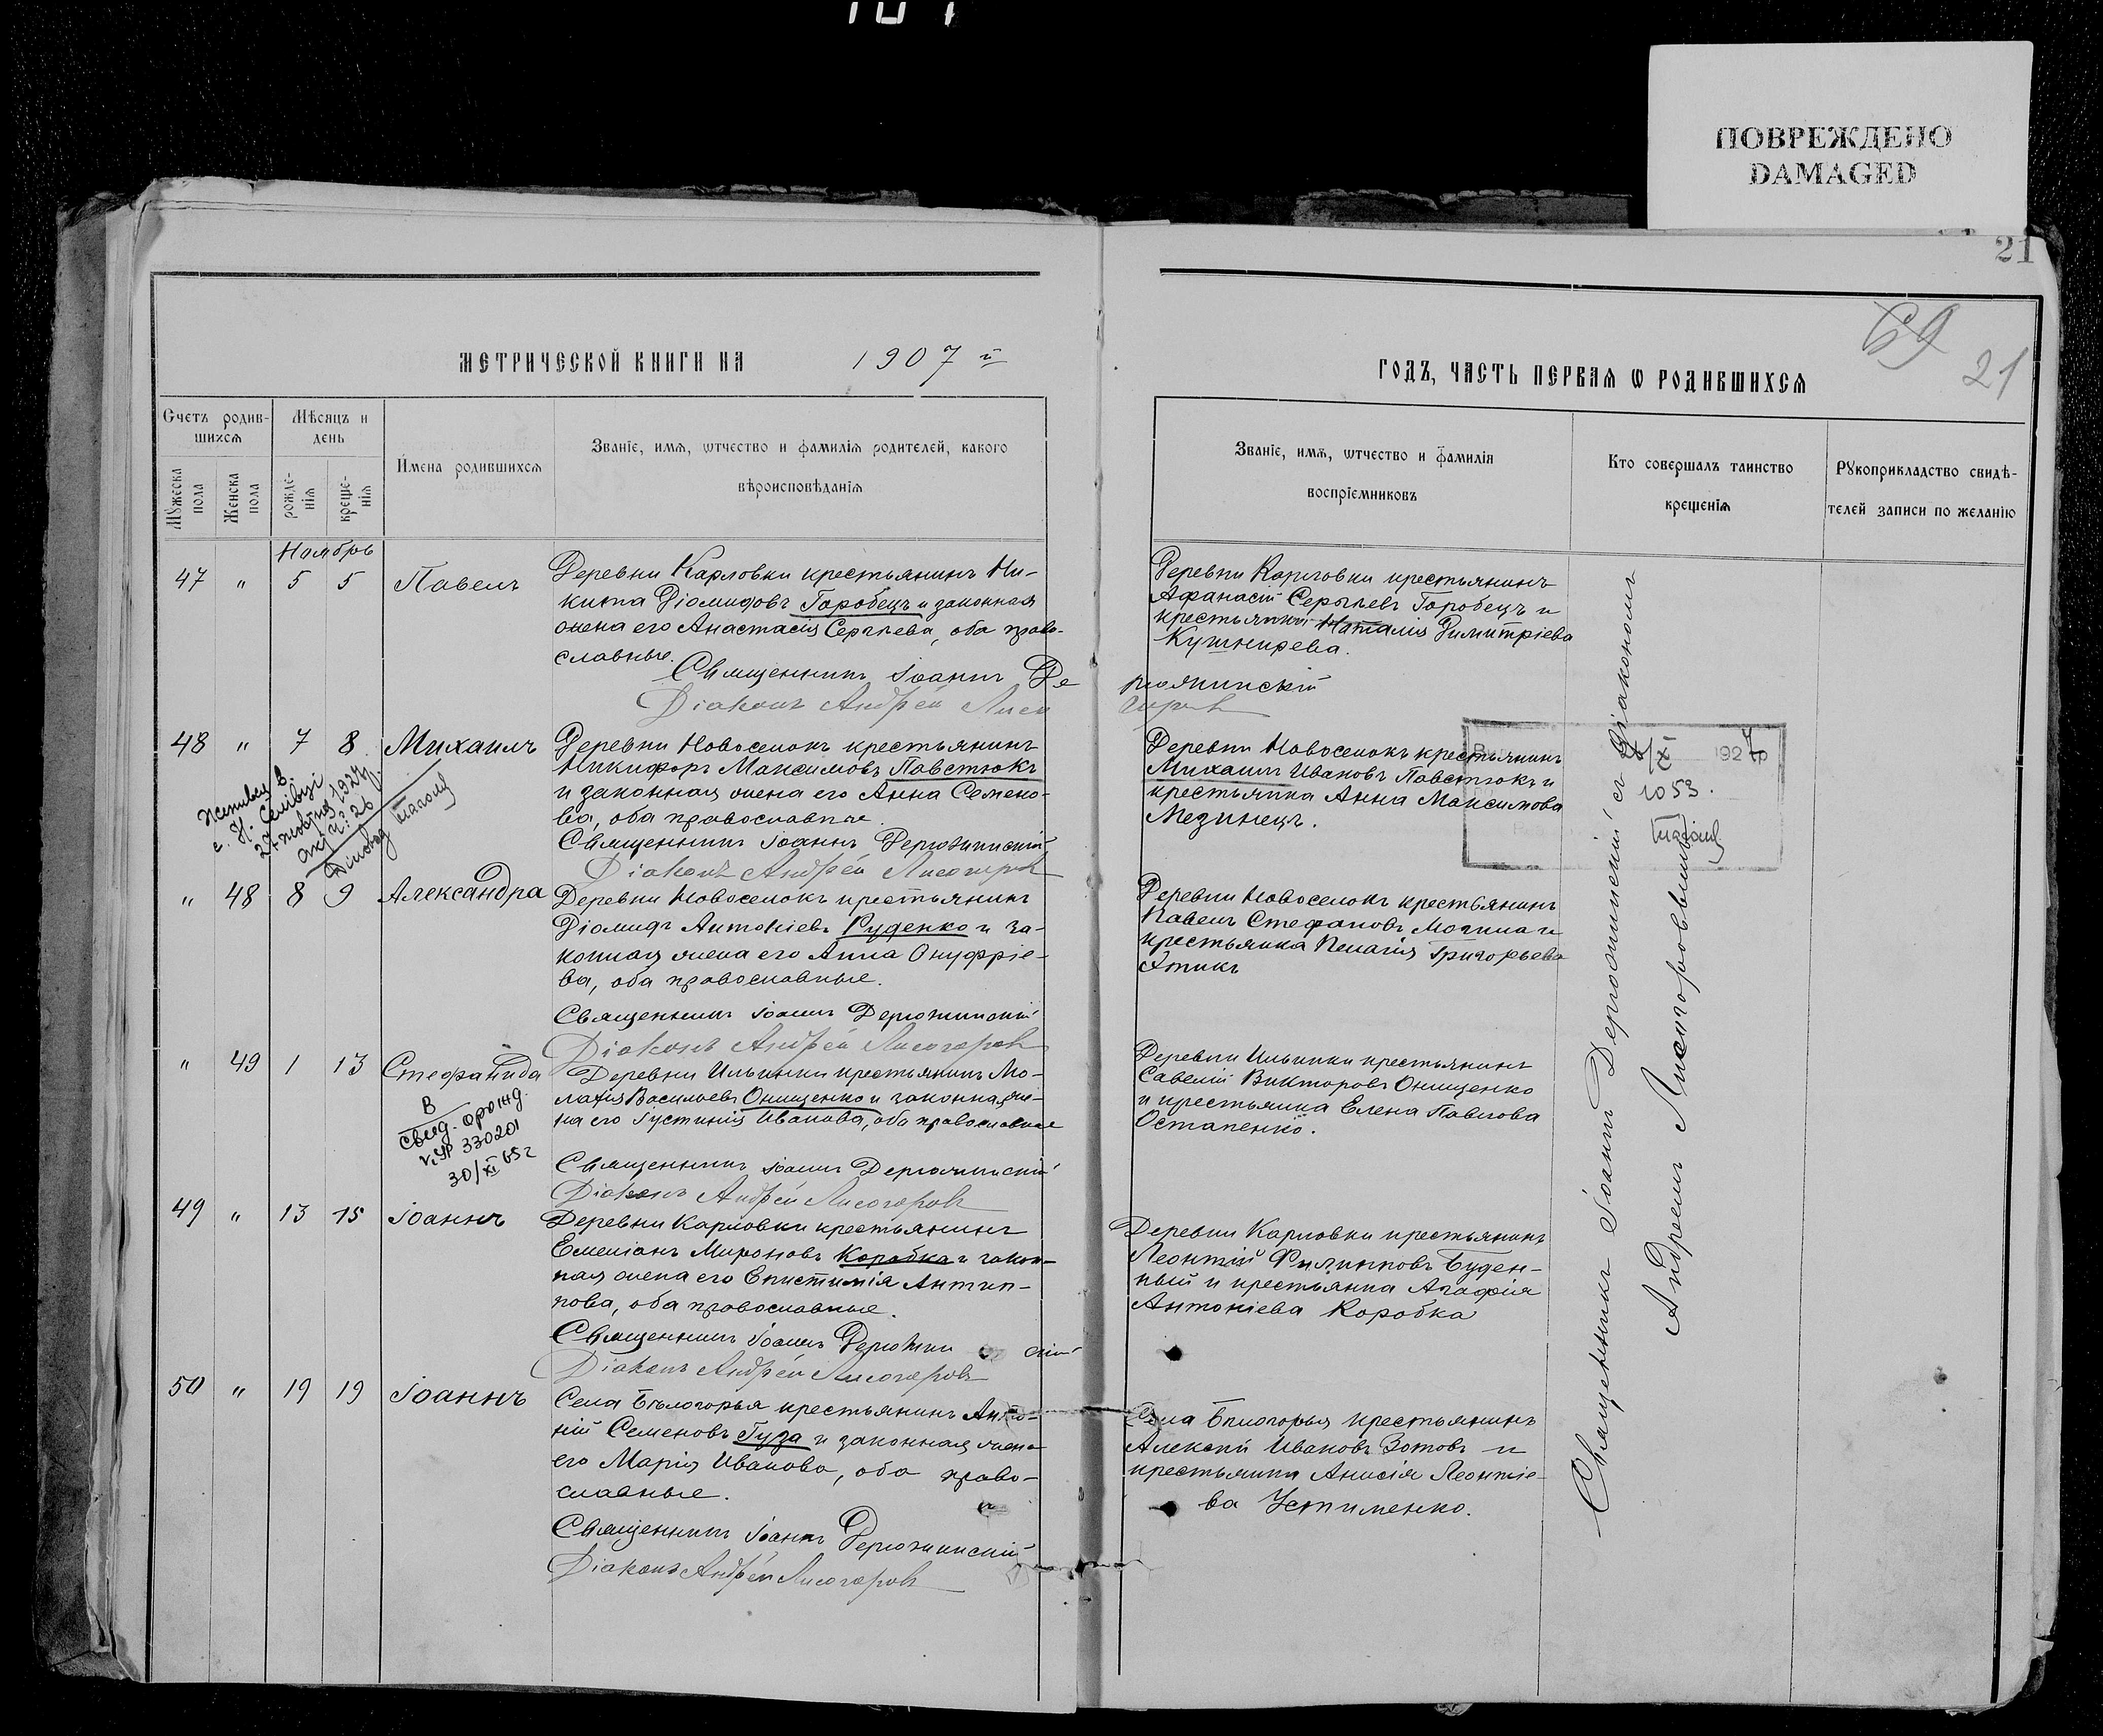 ПОВРЕЖДЕНО
DAMAGED
21
69
21
МЕТРИЧЕСКОЙ КНИГИ НА 1907 й
ГОДЪ, ЧАСТЬ ПЕРВАЯ Ѡ РОДИВШИХСЯ
Счетъ родив-
шихся
Мужеска пола
Женска пола
Мѣсяцъ и
день
рожде-
нія
креще-
нія
Имена родившихся
Званіе, имя, ѡтчество и фамилія родителей, какого
вѣроисповѣданія
Званіе, имя, ѡтчество и фамилія
воспріемниковъ
Кто совершалъ таинство
крещенія
Рукоприкладство свидѣ-
телей записи по желанію
Ноябрь
47 " 5 5 Павелъ
Деревни Карловки крестьянинъ Ни-
кита Діомидовъ Горобецъ и законная
жена его Анастасія Сергѣева, оба право-
славные.
Деревни Карловки крестьянинъ
Афанасій Сергѣевъ Горобецъ и
крестьянка Наталія Димитріева
Кушнирева.
Священникъ Іоаннъ Дерюжинскій
Діаконъ Андрей Лисогоровъ
48 " 7 8 Михаилъ
Деревни Новоселокъ крестьянинъ
Никифоръ Максимовъ Павстюкъ
и законная жена его Анна Семено-
ва, оба православные.
Священникъ Іоаннъ Дерюжинскій
Діаконъ Андрей Лисогоровъ
Деревни Новоселокъ крестьянинъ
Михаилъ Ивановъ Павстюкъ и
крестьянка Анна Максимова
Мезинецъ.
27 жовтня 1927 р.
1927 р
XI
1053.
" 48 8 9 Александра
Деревни Новоселокъ крестьянинъ
Діомидъ Антоніевъ Руденко и за-
конная жена его Анна Онуфріе-
ва, оба православные.
Священникъ Іоаннъ Дерюжинскій
Діаконъ Андрей Лисогоровъ
Деревни Новоселокъ крестьянинъ
Павелъ Стефановъ Могила и
крестьянка Пелагія Григорьева
" 49 1 13 Стефанида
В
свид. о рожд.
330201
30/XI 65 г
Деревни Ильинки крестьянинъ Мо-
Васильевъ Онищенко и законная же-
на его Іустинія Иванова, оба православные
Священникъ Іоаннъ Дерюжинскій
Діаконъ Андрей Лисогоровъ
Деревни Ильинки крестьянинъ
Савелій Викторовъ Онищенко
и крестьянка Елена Павлова
Остапенко.
49 " 13 15 Іоаннъ
Деревни Карловки крестьянинъ
Емеліанъ Мироновъ Коробка и закон-
ная жена его Епистимія Антип-
пова, оба православные.
Священникъ Іоаннъ Дерюжинскій
Діаконъ Андрей Лисогоровъ
Деревни Карловки крестьянинъ
Леонтій Филипповъ Буден-
ный и крестьянка Агафія
Антоніева Коробка
50 " 19 19 Іоаннъ
Села Бѣлогорья крестьянинъ Анто-
ній Семеновъ Гуза и законная жена
его Марія Иванова, оба право-
славные.
Священникъ Іоаннъ Дерюжинскій
Діаконъ Андрей Лисогоровъ
Села Бѣлогорья крестьянинъ
Алексѣй Ивановъ Зотовъ и
крестьянка Анисія Леонтіе-
ва Устименко.
Священникъ Іоаннъ Дерюжинскій съ Діакономъ
Андреемъ Лисогоровымъ